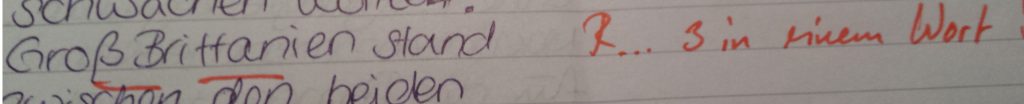 schwächen
Groß Brittanien stand R... 3 in einem Wort!
zwischen den beiden